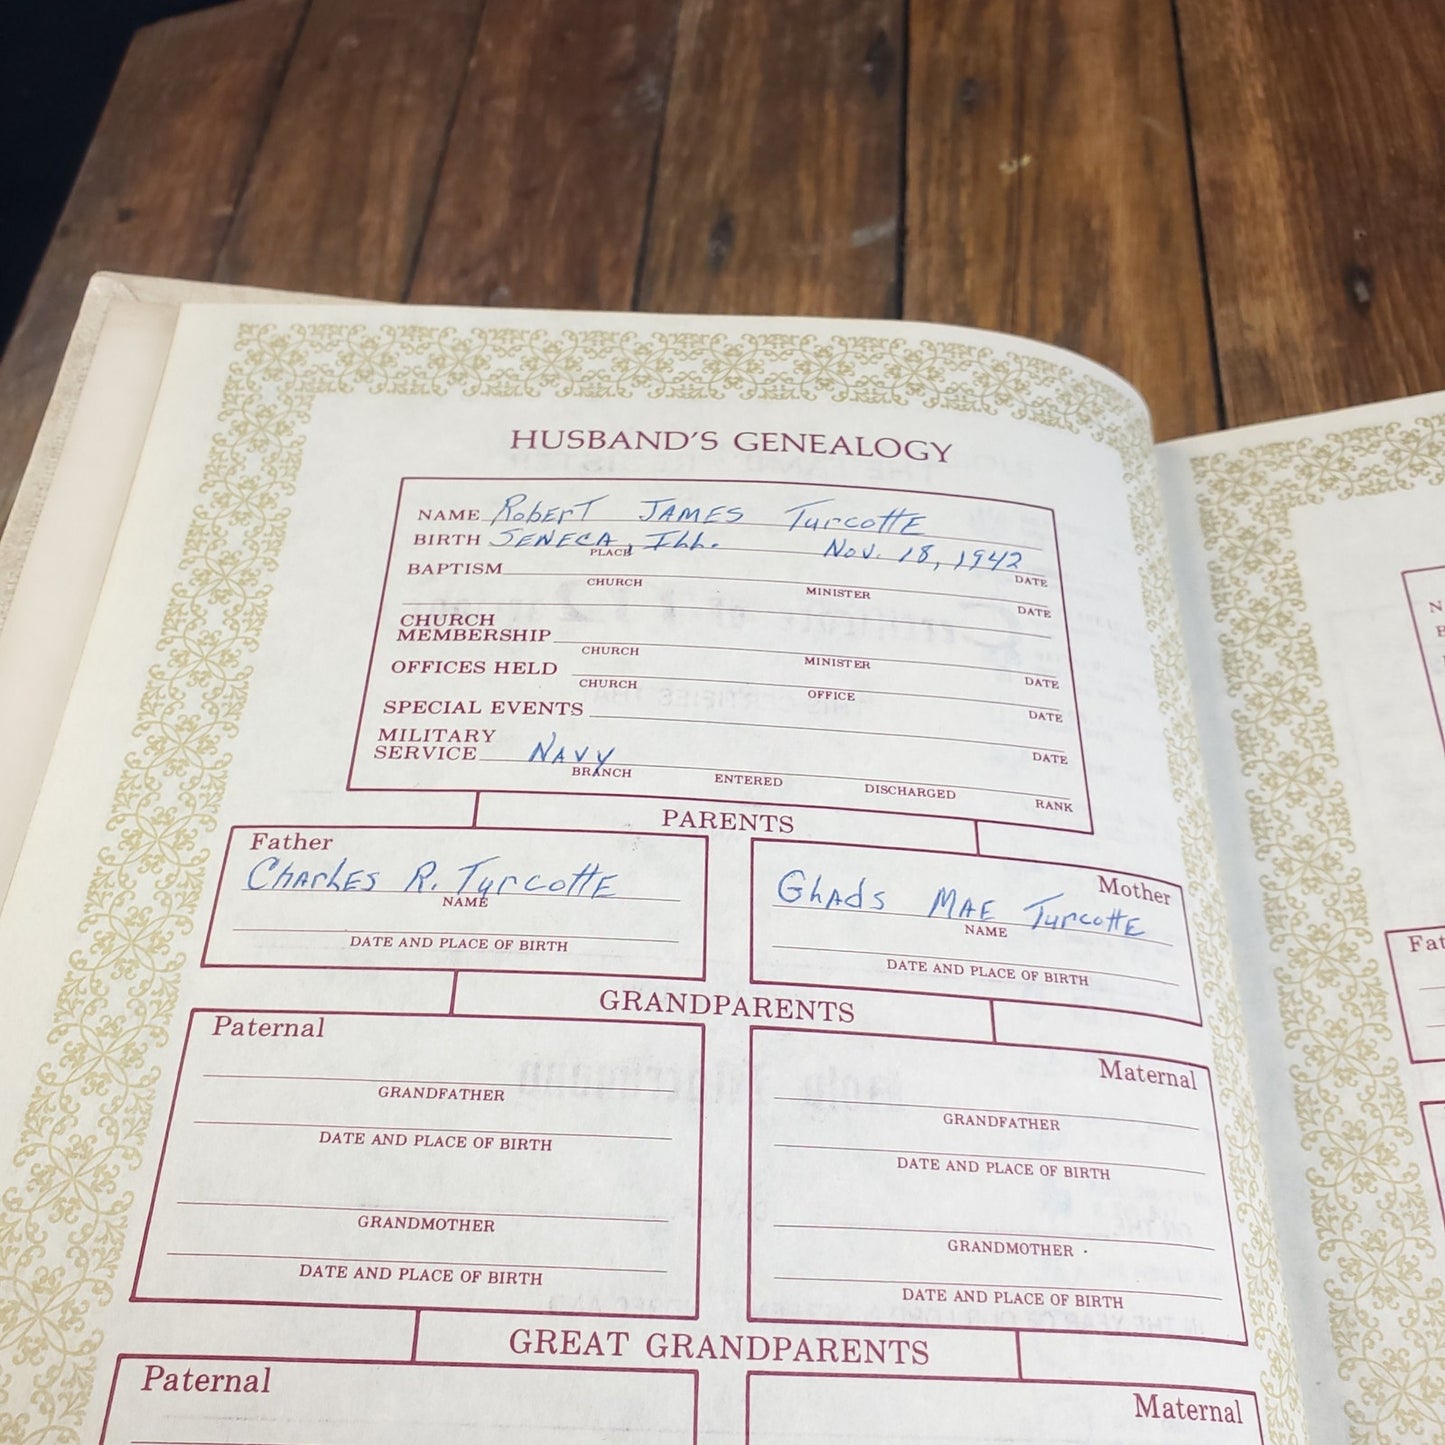 HUSBAND'S GENEALOGY
NAME Robert JAMES Turcotte
BIRTH SENECA, Ill. Nov. 18, 1942
PLACE DATE
BAPTISM
CHURCH MINISTER DATE
CHURCH
MEMBERSHIP
CHURCH MINISTER DATE
OFFICES HELD
CHURCH OFFICE DATE
SPECIAL EVENTS
DATE
MILITARY
SERVICE NAVY
BRANCH ENTERED DISCHARGED RANK
PARENTS
Father
Charles R. Turcotte
NAME
DATE AND PLACE OF BIRTH
Mother
Glads MAE Turcotte
NAME
DATE AND PLACE OF BIRTH
GRANDPARENTS
Paternal
GRANDFATHER
DATE AND PLACE OF BIRTH
GRANDMOTHER
DATE AND PLACE OF BIRTH
Maternal
GRANDFATHER
DATE AND PLACE OF BIRTH
GRANDMOTHER
DATE AND PLACE OF BIRTH
GREAT GRANDPARENTS
Paternal
Maternal